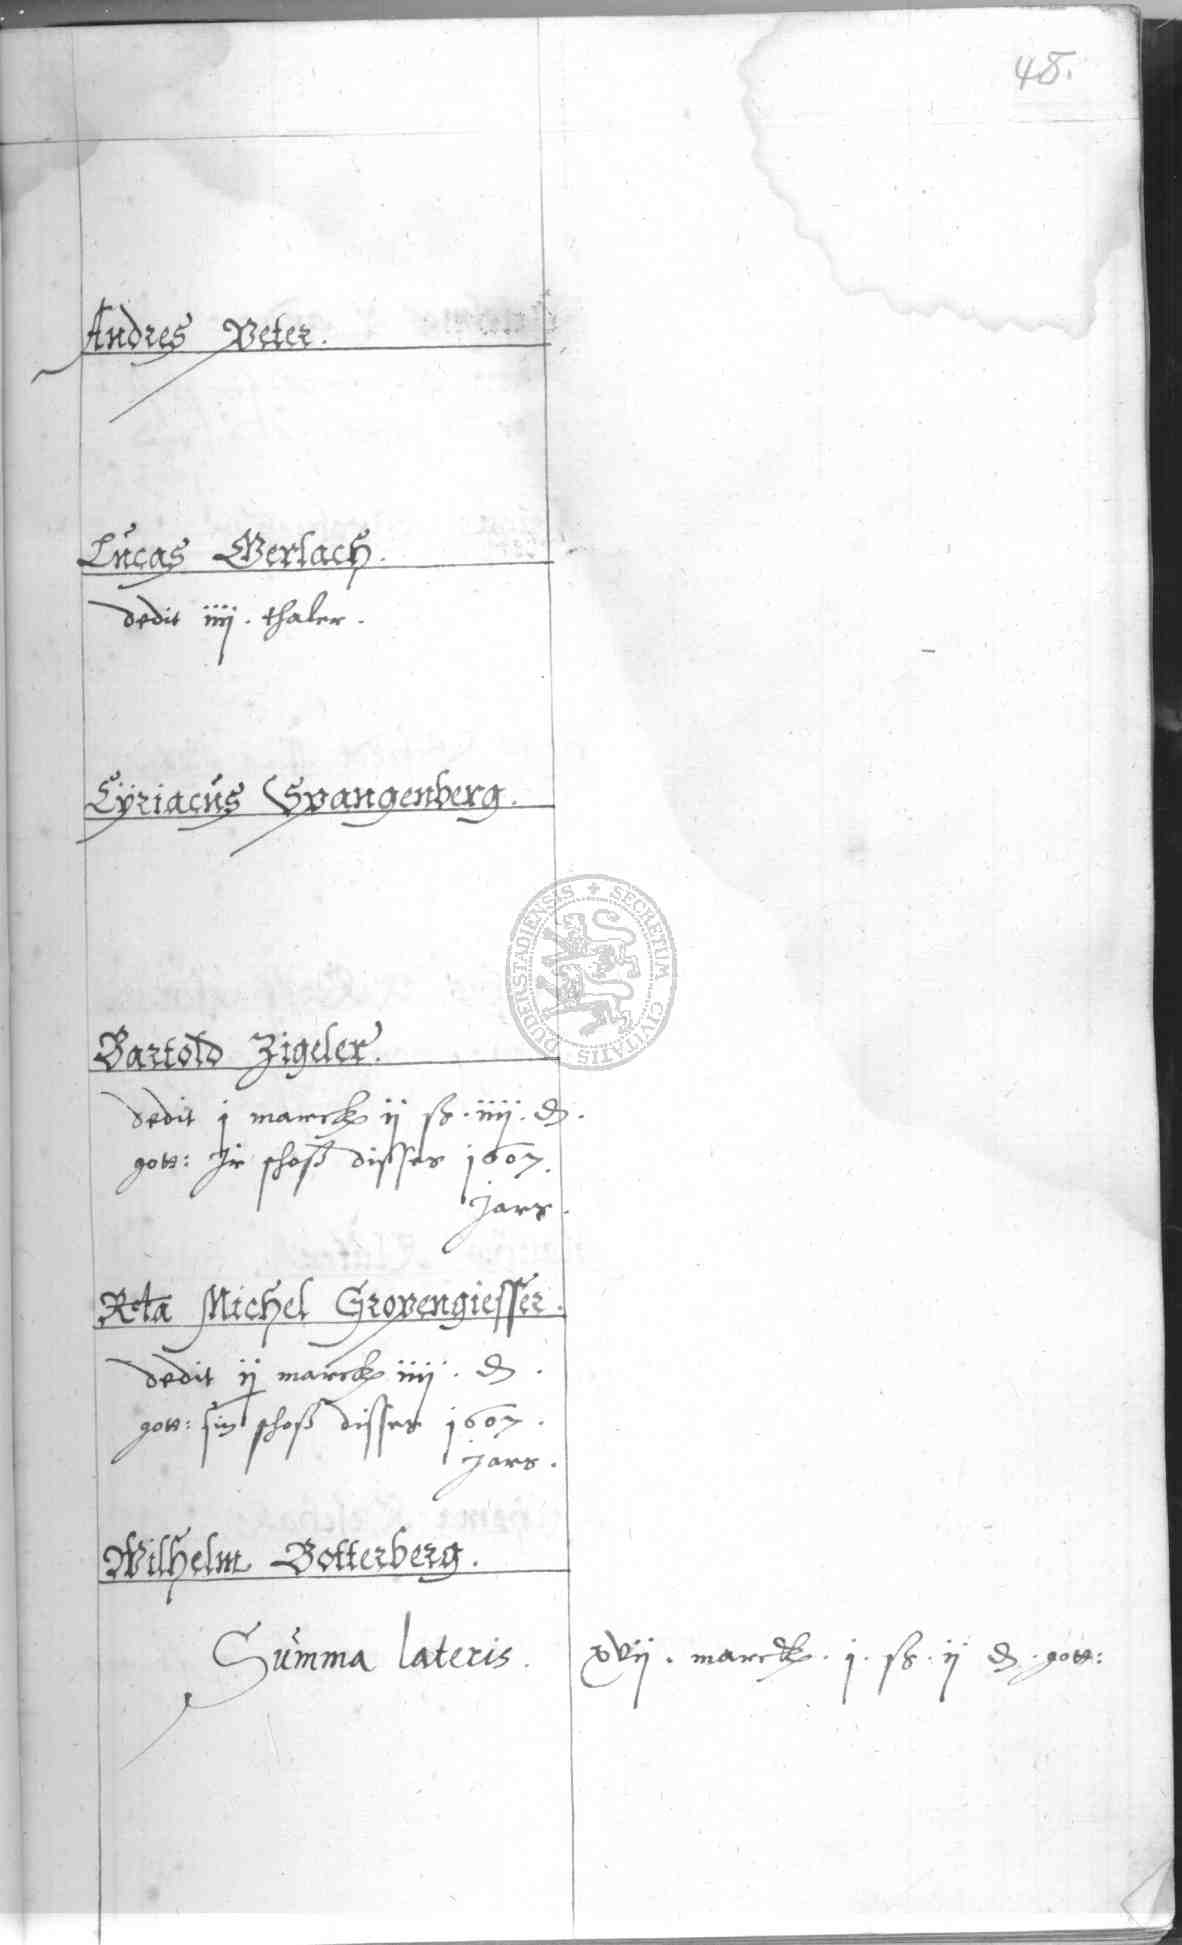 48.
Andres Peter.
Lucas Gerlach.
dedit iiij. thaler.
Cÿriacus Spangenberg.
Bartold Zigeler.
dedit j marck ij ß. iiij. ₰.
gott: Jr schoß disses 1607.
jars.
Rcta Michel Gropengiesser.
dedit ij marck iiij. ₰.
gott: sin schoß disses 1607.
jars.
Wilhelm Botterberg.
Summa lateris. xvij. marck. j. ß. ij ₰. gott:
SECRETUM CIVITATIS DUDERSTADIENSIS